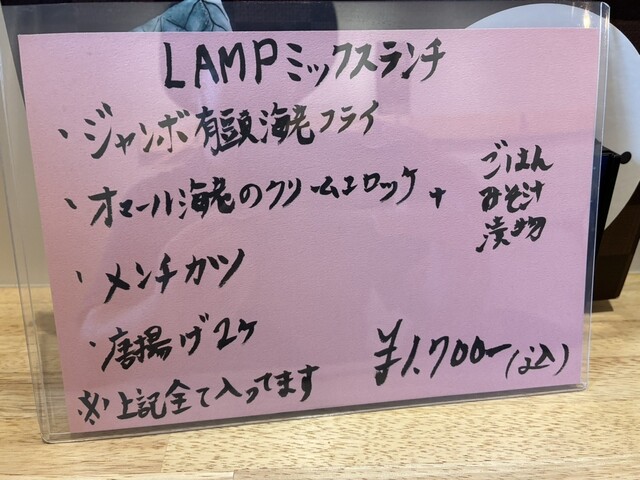 LAMPミックスランチ
・ジャンボ有頭海老フライ
・オマール海老のクリームコロッケ +
ごはん
みそ汁
漬物
・メンチカツ
・唐揚げ2ヶ
¥1.700-(込)
※上記全て入ってます